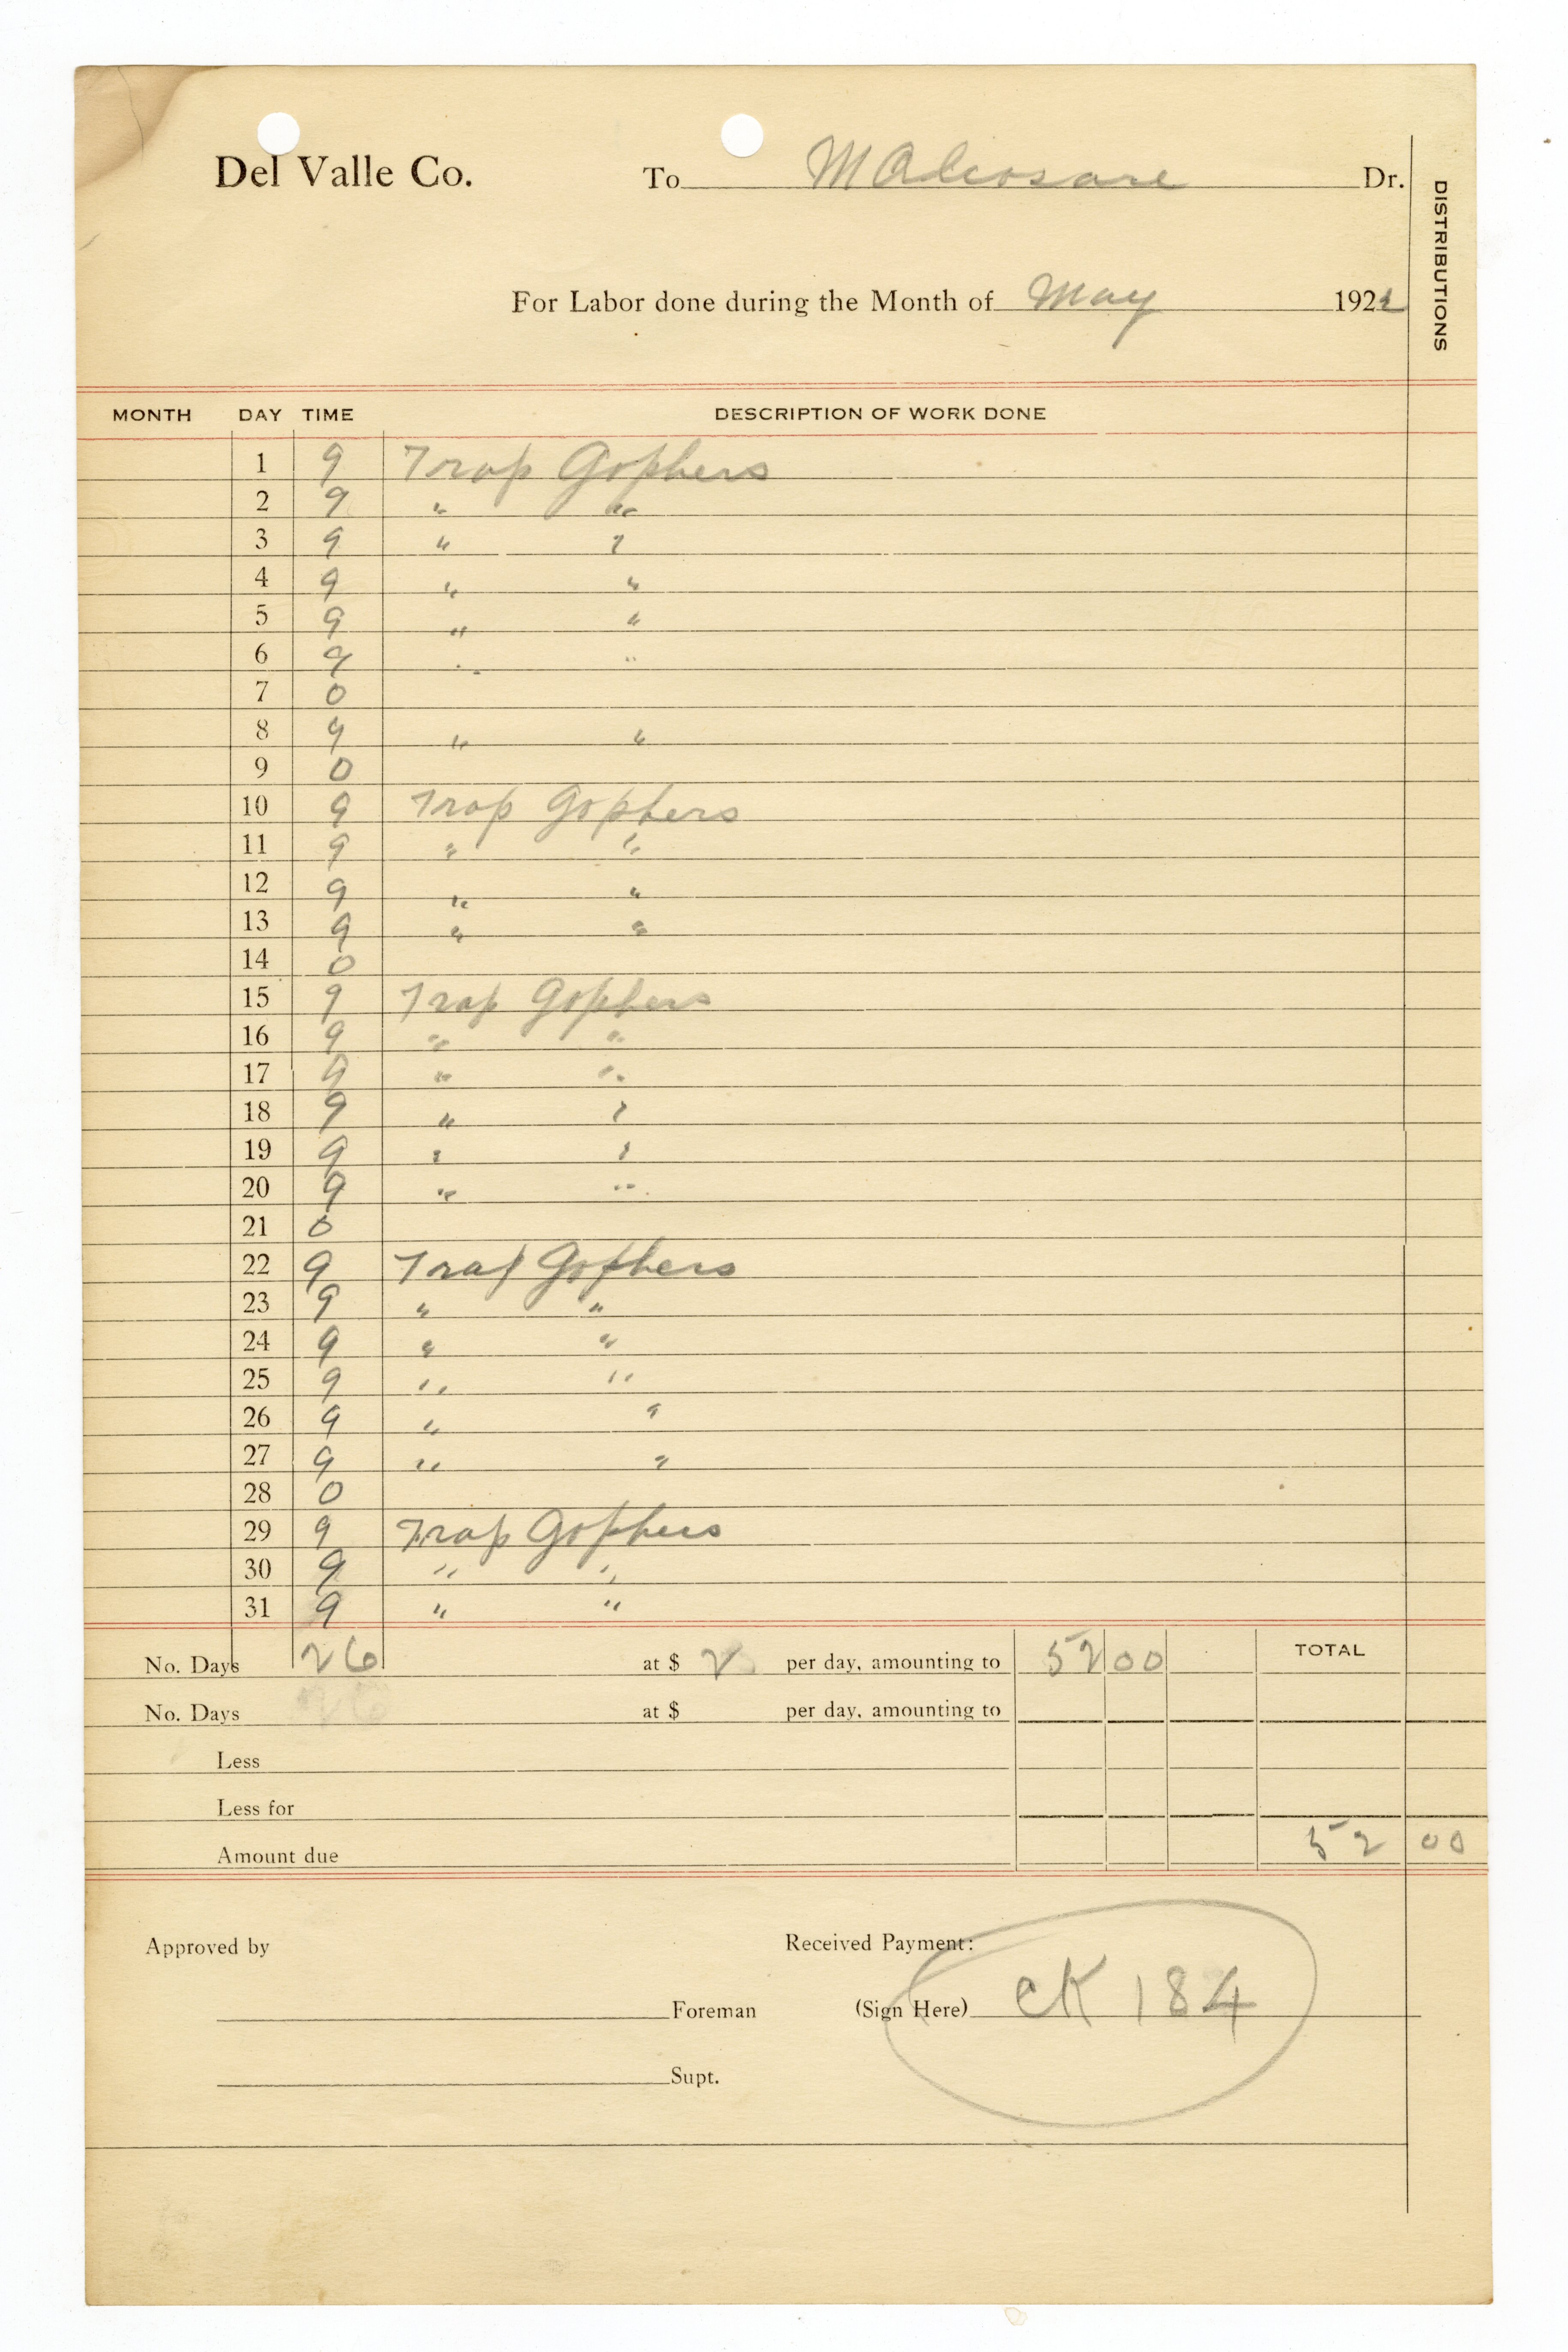 Del Valle Co. To M Alcosare Dr.
DISTRIBUTIONS
For Labor done during the Month of May 1922
MONTH DAY TIME DESCRIPTION OF WORK DONE
1 9 Trap Gophers
2 9 " "
3 9 " "
4 9 " "
5 9 " "
6 9 " "
7 0
8 9 " "
9 0
10 9 Trap Gophers
11 9 " "
12 9 " "
13 9 " "
14 0
15 9 Trap Gophers
16 9 " "
17 9 " "
18 9 " "
19 9 " "
20 9 " "
21 0
22 9 Trap Gophers
23 9 " "
24 9 " "
25 9 " "
26 9 " "
27 9 " "
28 0
29 9 Trap Gophers
30 9 " "
31 9 " "
No. Days 26 at $ 2 per day, amounting to 52 00 TOTAL
No. Days 26 at $ per day, amounting to
Less
Less for
Amount due 52 00
Approved by Received Payment:
Foreman (Sign Here) CK 184
Supt.